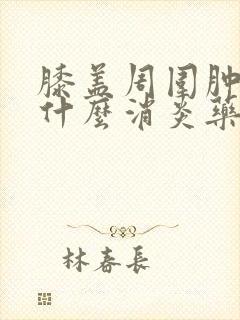 膝盖周围肿
什麼消炎藥
林春長